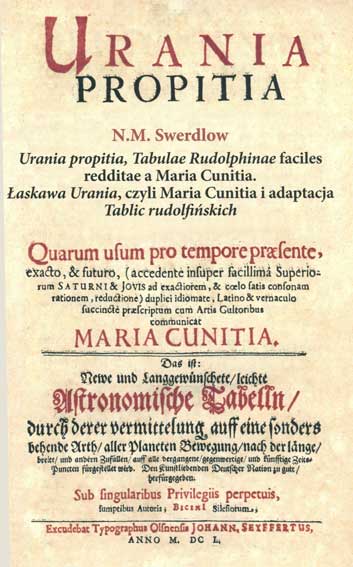 URANIA
PROPITIA
N.M. Swerdlow
Urania propitia, Tabulae Rudolphinae faciles
redditae a Maria Cunitia.
Łaskawa Urania, czyli Maria Cunitia i adaptacja
Tablic rudolfińskich
Quarum usum pro tempore præsente,
exacto, & futuro, (accedente insuper facillimâ Superio-
rum SATURNI & JOVIS ad exactiorem, & cœlo satis consonam
rationem, reductione) duplici idiomate, Latino & vernaculo
succinctè præscriptum cum Artis Cultoribus
communicat
MARIA CUNITIA.
Das ist:
Newe und Langgewünschete/ leichte
Astronomische Tabelln/
durch derer vermittelung auff eine sonders
behende Arth/ aller Planeten Bewegung/ nach der länge/
breite/ und andern Zufällen/ auff alle vergangene/ gegenwertige/ und künfftige Zeits-
Puncten fürgestellet wird. Den Kunstliebenden Deutscher Nation zu gutte/
herfürgegeben.
Sub singularibus Privilegiis perpetuis,
sumptibus Autoris, BICINI Silesiorum,
Excudebat Typographus Olsnensis JOHANN. SEYFFERTUS,
ANNO M. DC L.